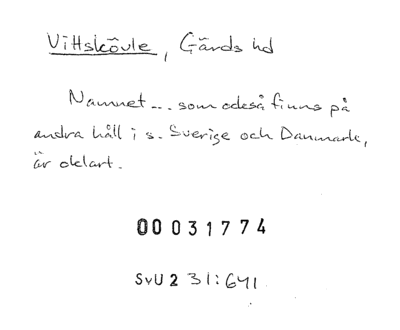 Vittskövle, Gärds hd
Namnet... som också finns på
andra håll i s. Sverige och Danmark,
är oklart.
00031774
SvU 2 31:641